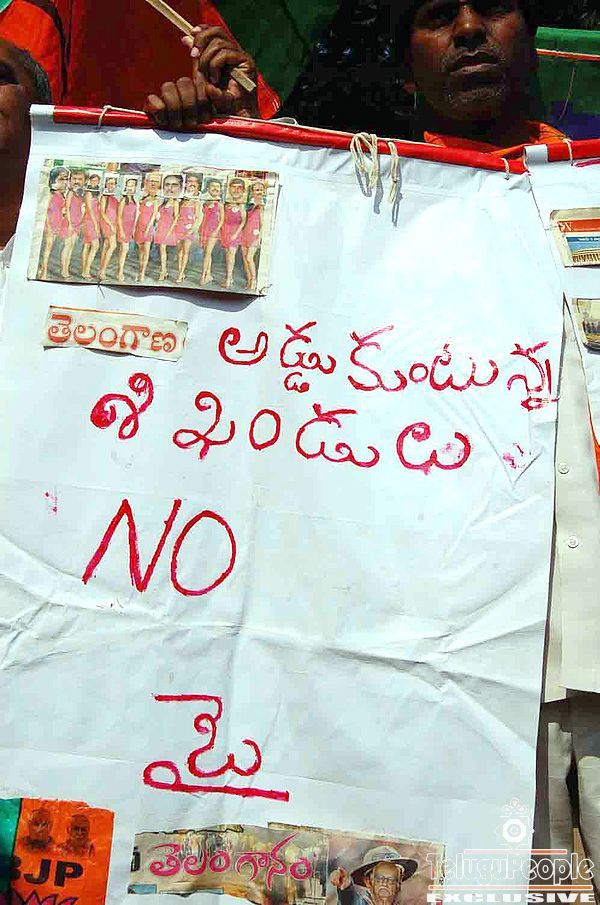 తెలంగాణ అడ్డుకుంటున్న
శిఖండులు
NO
BJP
తెలంగాణం
TeluguPeople
EXCLUSIVE